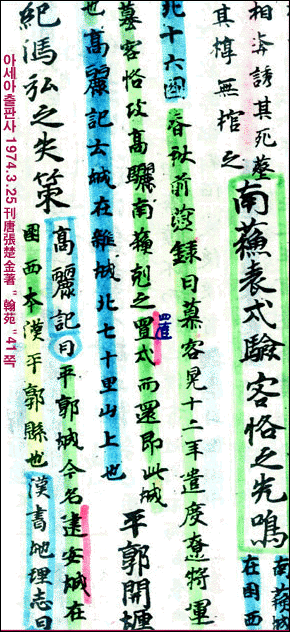 相奔誘其死葬
其椁無棺之
南蘓表式驗客恪之先鳴
南蘓城
在国西
北十六國春秋前燕録曰慕客晃十二年遣度遼将軍
慕客恪攻高驪南蘓剋之置戍而還即此城
置
也高麗記云城在雜城北七十里山上也
平郭開壃
紀馮弘之失策
高麗記曰平郭城今名建安城在
國西本漢平郭縣也漢書地理志曰
아세아 출판사 1974.3.25 刊唐張楚金著 "翰苑" 41 쪽